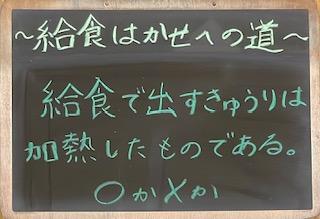 ～給食はかせへの道～
給食で出すきゅうりは
加熱したものである。
○か×か